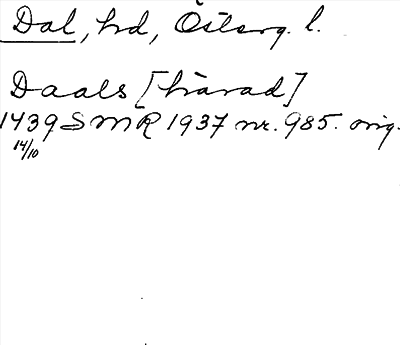 Dal, hd, Österg. l.
Daals [hàrad]
1439 SMR 1937 nr. 985. orig.
14/10